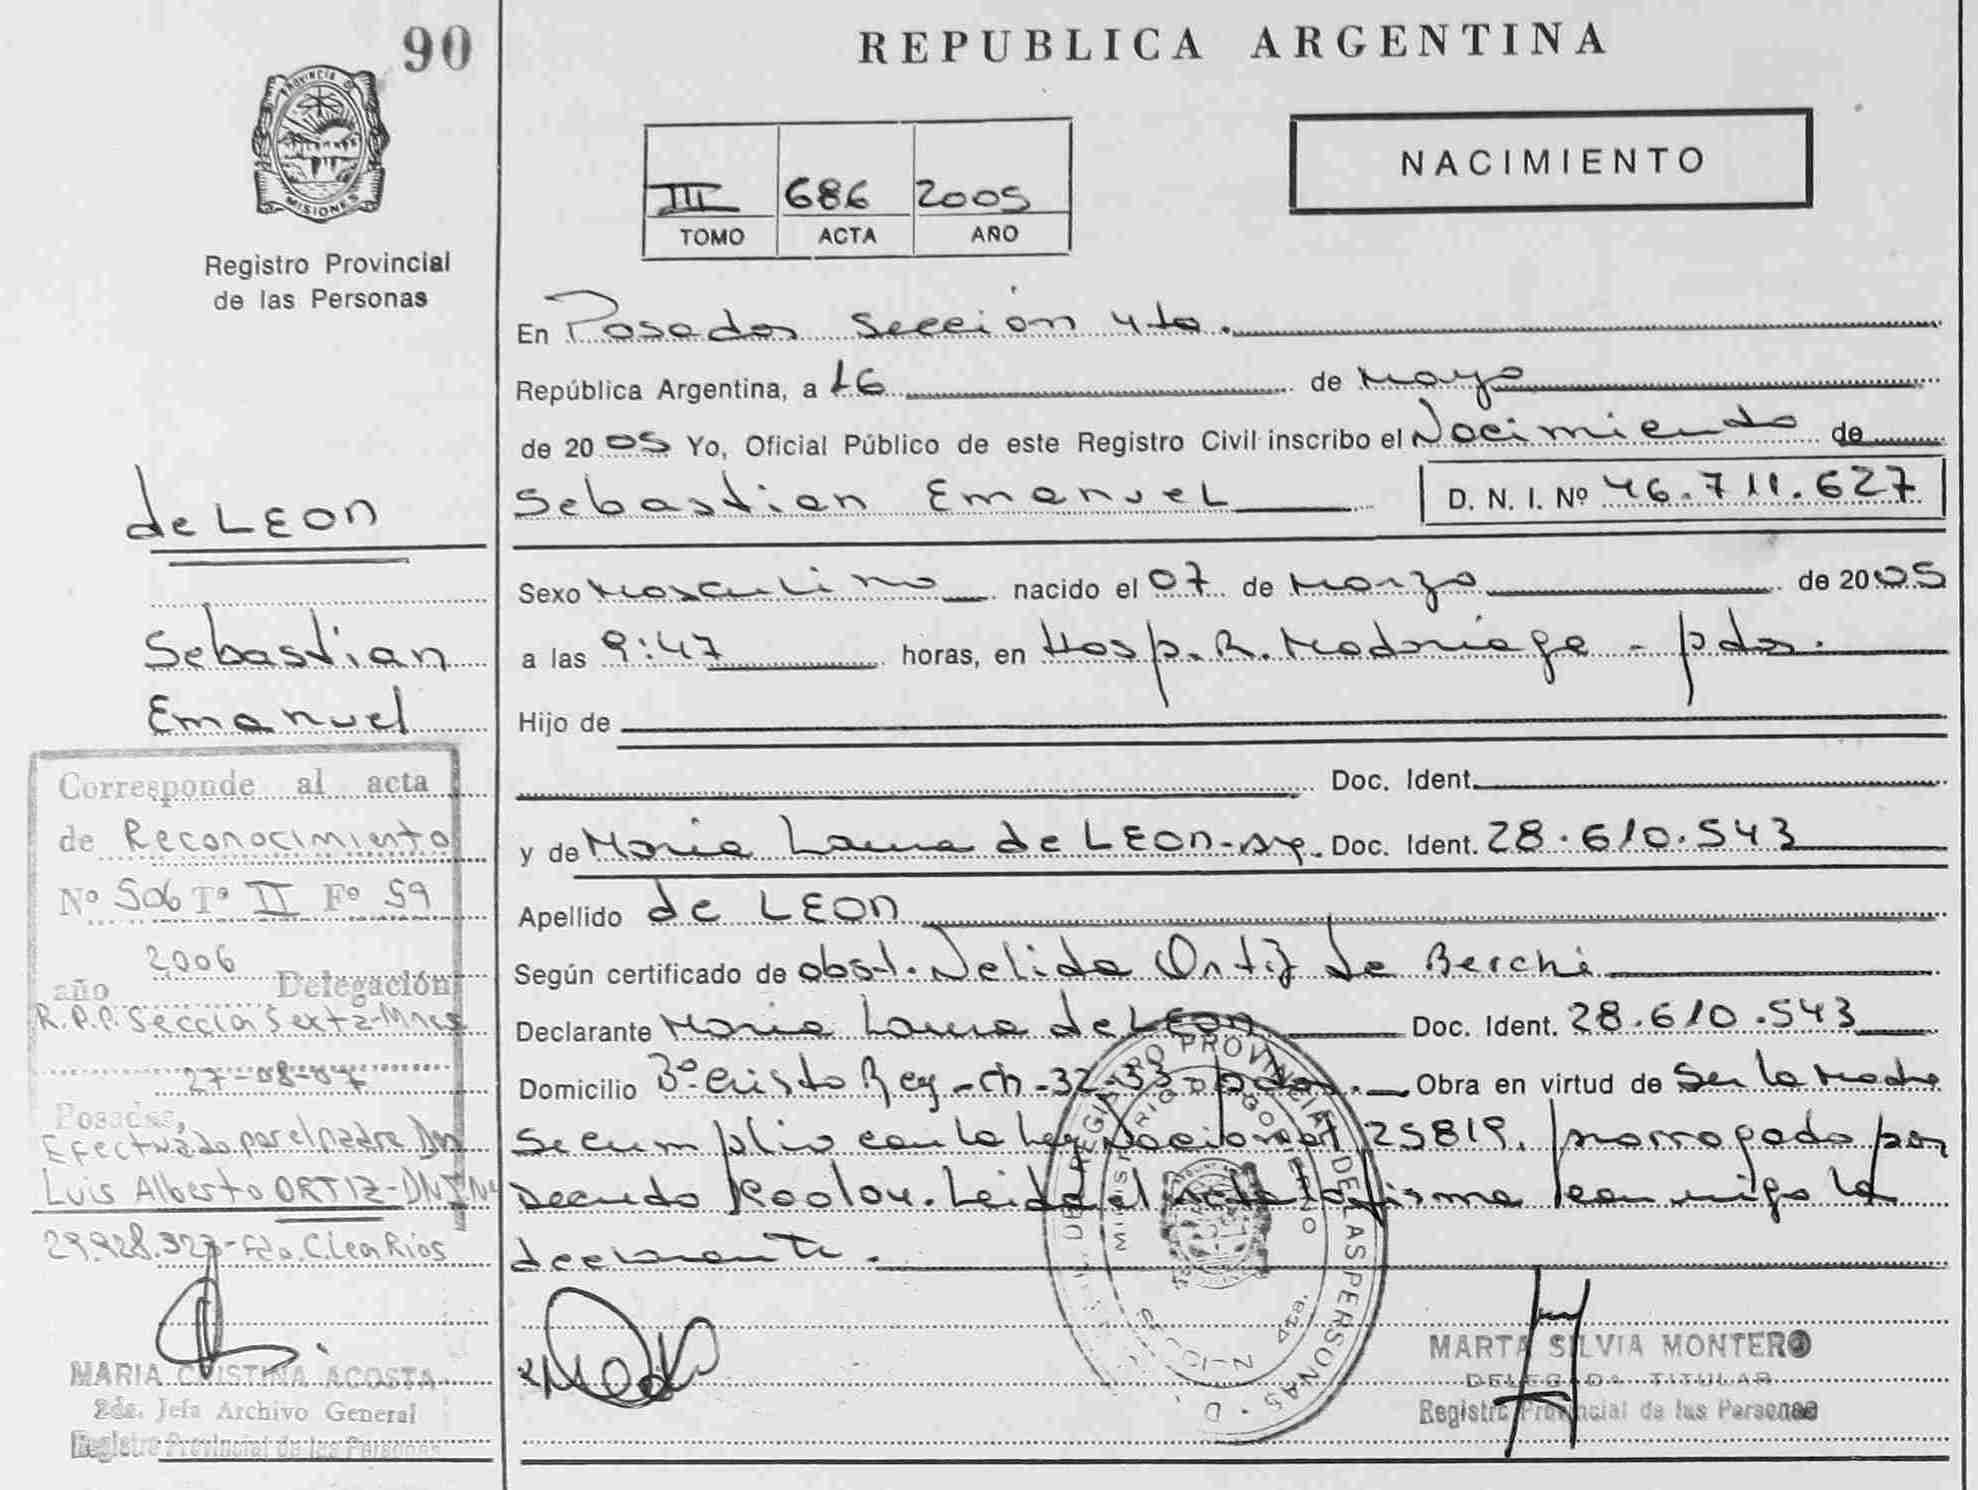 90
PROVINCIA DE
MISIONES
Registro Provincial
de las Personas
de LEON
Sebastian
Emanuel
Corresponde al acta
de Reconocimiento
Nº 506 Tº II Fº 59
año 2006 Delegación
R.P.P. Sección Sexta-Mnes
27-08-07
Posadas,
Efectuado por el padre Dn
Luis Alberto ORTIZ-DNI Nº
29.928.327-Fdo. Clea Rios
MARIA CRISTINA ACOSTA
2da. Jefa Archivo General
Registro Provincial de las Personas
REPUBLICA ARGENTINA
III 686 2005
TOMO ACTA AÑO
NACIMIENTO
En Posadas Sección 4ta.
República Argentina, a 16 de Mayo
de 2005 Yo, Oficial Público de este Registro Civil inscribo el Nacimiento de
Sebastian Emanuel D. N. I. Nº 46.711.627
Sexo Masculino nacido el 07 de Marzo de 2005
a las 9:47 horas, en Hosp. R. Madariaga - pdas.
Hijo de
Doc. Ident.
y de Maria Laura de LEON-arg. Doc. Ident. 28.610.543
Apellido de LEON
Según certificado de obst. Nelida Ortiz de Berchi
Declarante Maria Laura de LEON Doc. Ident. 28.610.543
Domicilio Bº Cristo Rey - ch - 32-33 pdas. Obra en virtud de Ser la Madre
Se cumplio con la Ley Nacional 25819, prorrogado por
Decreto Leida el acta la firma conmigo la
declarante.
REGISTRO PROVINCIAL DE LAS PERSONAS
MINISTERIO DE GOBIERNO
SECCION 4ta.
MARTA SILVIA MONTERO
DELEGADA TITULAR
Registro Provincial de las Personas